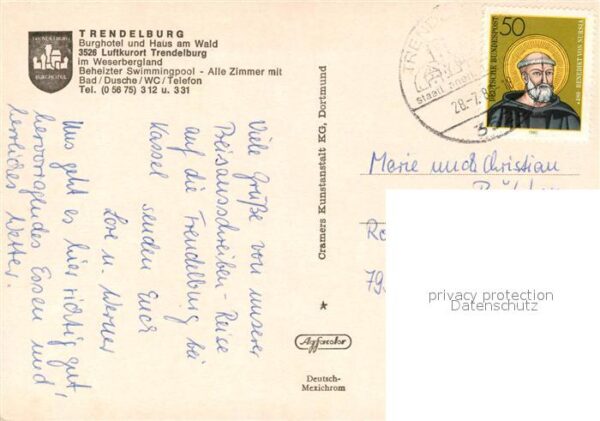 TRENDELBURG
Burghotel und Haus am Wald
3526 Luftkurort Trendelburg
im Weserbergland
Beheizter Swimmingpool - Alle Zimmer mit
Bad/Dusche/WC/Telefon
Tel. (0 56 75) 312 u. 331
TRENDELBURG
BURGHOTEL
Viele Grüße von unserer
Preisausschreiben-Reise
auf die Trendelburg bei
Kassel senden Euch
Lore u. Werner
Uns geht es hier richtig gut
hervorragendes Essen und
herrliches Wetter.
Cramers Kunstanstalt KG, Dortmund
Agfacolor
Deutsch-
Mexichrom
TREND
staatl. aner
28.-7.8
3
50
DEUTSCHE BUNDESPOST
480 BENEDIKT VON NURSIA
1980
Marie und Christian
Re
79
privacy protection
Datenschutz